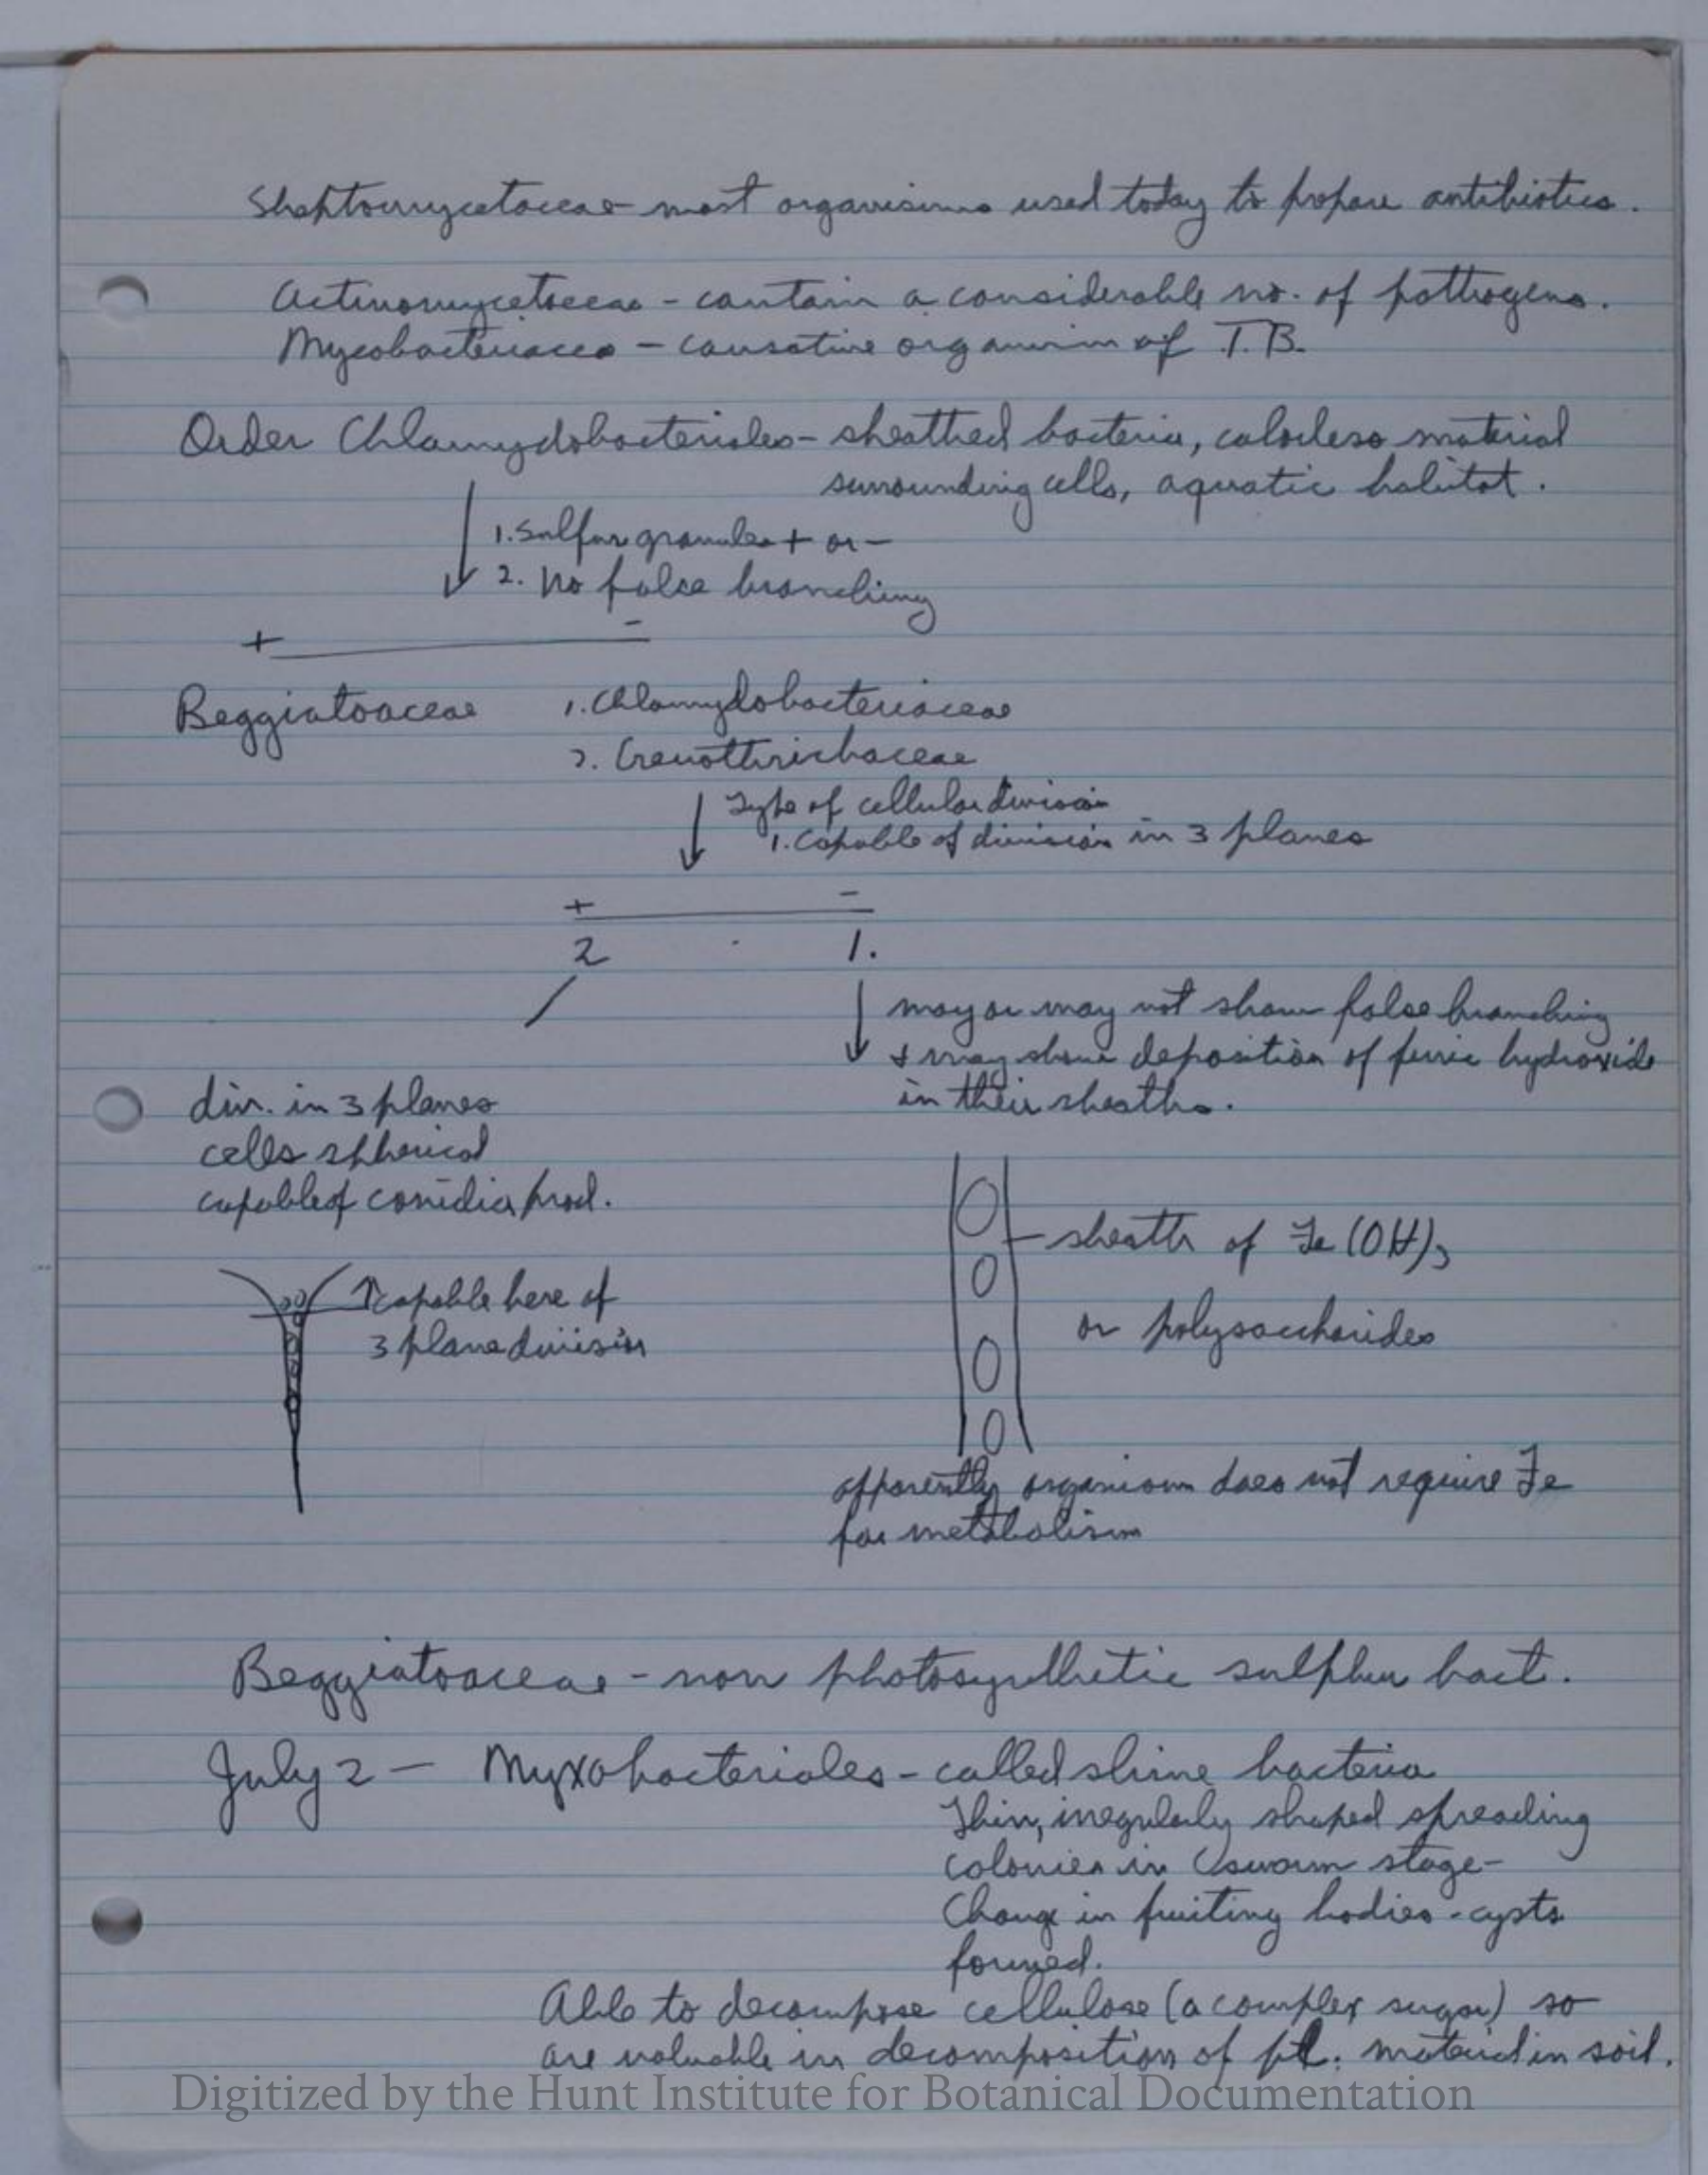 Streptomycetaceae most organisms used today to prepare antibiotics.
Actinomycetaceae - contain a considerable no. of pathogens.
Mycobacteriacea - causative organism of T.B.
Order Chlamydobacteriales - sheathed bacteria, colorless material
surrounding cells, aquatic habitat.
1. Sulfur granules + or -
2. No false branching
+ -
Beggiatoaceae 1. Chlamydobacteriaceae
2. Crenothrichaceae
Type of cellular division
1. Capable of division in 3 planes
+ -
2 1.
may or may not show false branching
& may show deposition of ferric hydroxide
in their sheaths.
div. in 3 planes
cells spherical
capable of conidia prod.
sheath of Fe(OH)3
or polysaccharides
capable here of
3 plane division
apparently organism does not require Fe
for metabolism
Beggiatoaceae - non photosynthetic sulphur bact.
July 2 - Myxobacteriales - called slime bacteria
Thin, irregularly shaped spreading
colonies in swarm stage -
Change in fruiting bodies - cysts
formed.
Able to decompose cellulose (a complex sugar) so
are valuable in decomposition of pl. material in soil.
Digitized by the Hunt Institute for Botanical Documentation